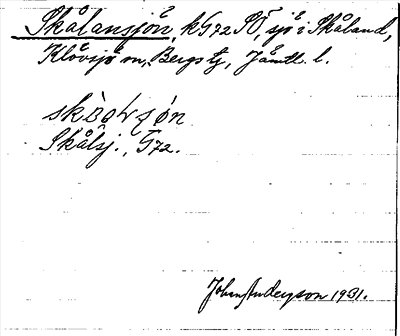 Skålansjön, kG72SÖ, sjö i Skåland,
Klövsjö sn, Bergs tj, Jämtl. l.
Skålsj., G72.
John Anderson 1931.